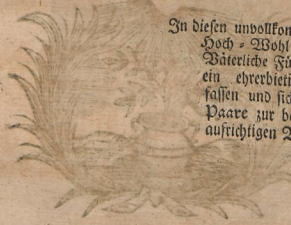 In diesen unvollkon
Hoch - Wohl
Väterliche Fü
ein ehrerbieti
fassen und sic
Paare zur b
aufrichtigen